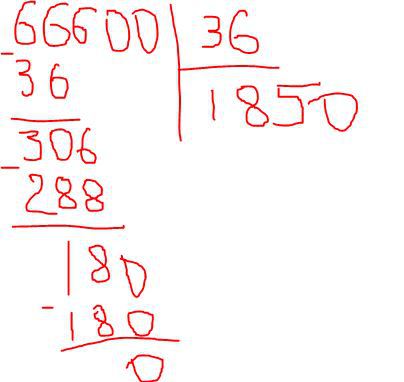 66600 36
- 36 1850
306
- 288
180
- 180
0